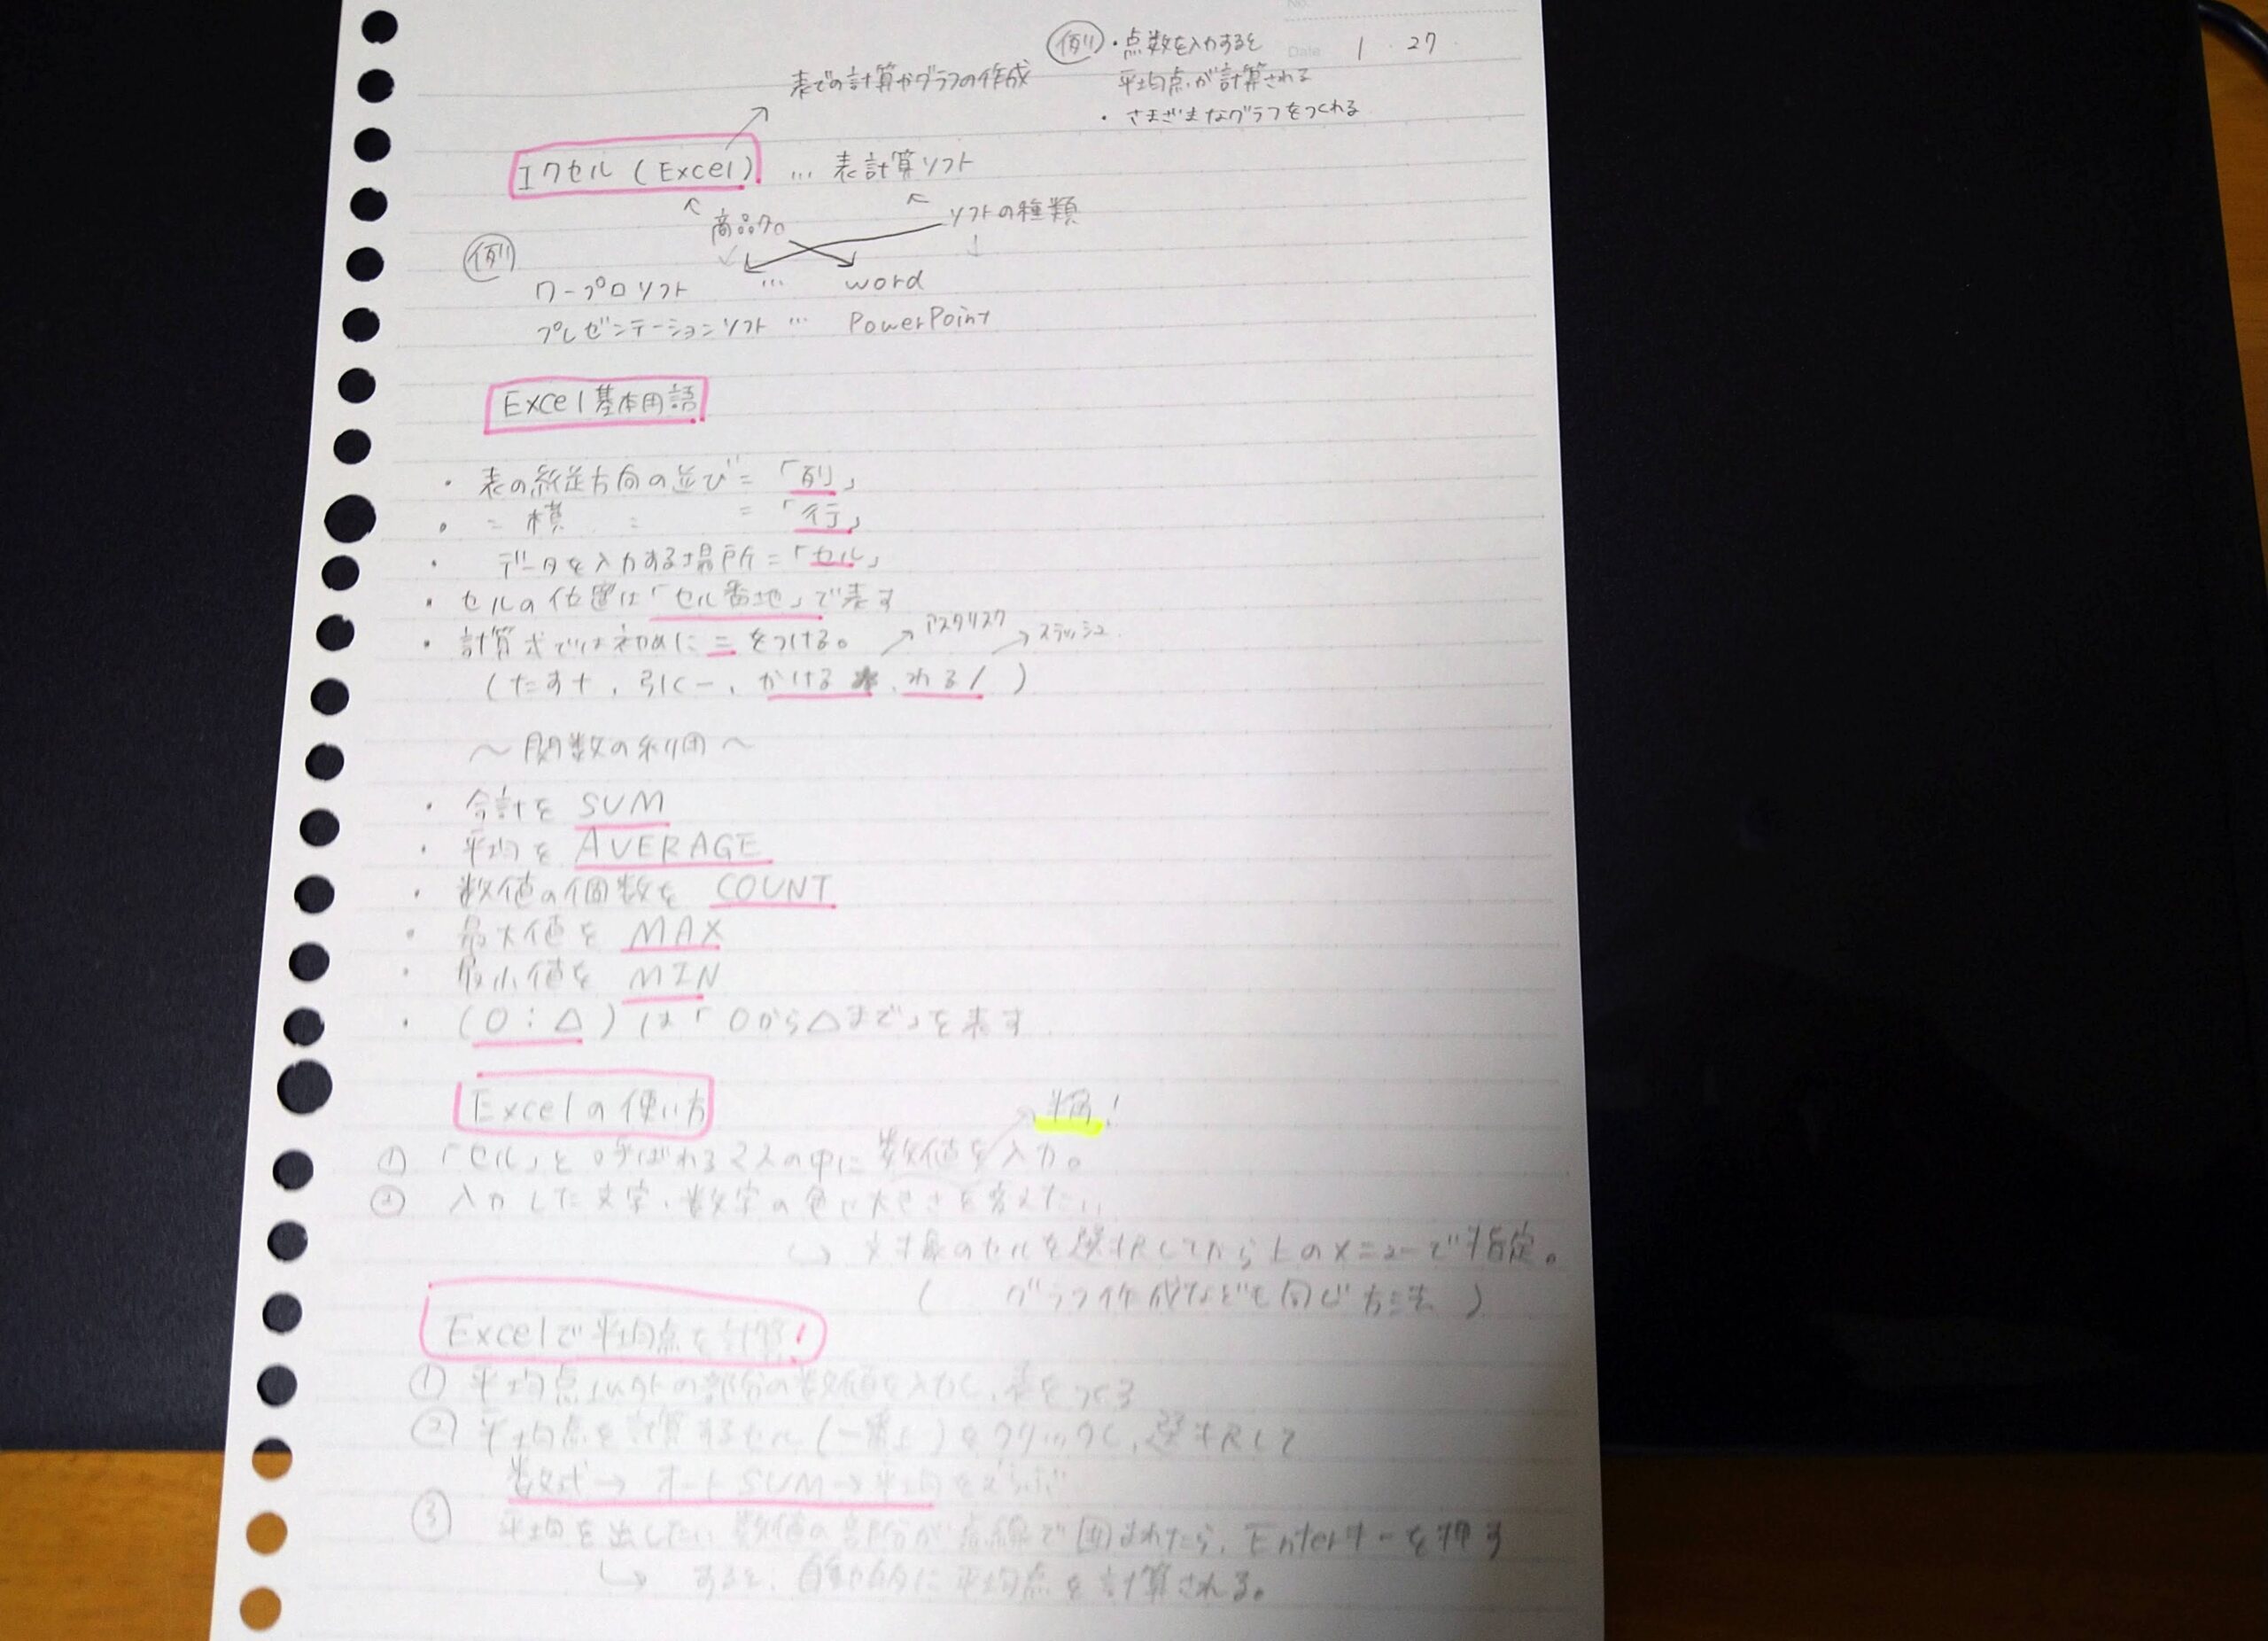 No.
Date 1 ・ 27 ・
例 ・点数を入力すると
平均点が計算される
・さまざまなグラフをつくれる
表での計算やグラフの作成
エクセル(Excel) … 表計算ソフト
商品名 ソフトの種類
例
ワープロソフト … word
プレゼンテーションソフト … PowerPoint
Excel基本用語
・表の縦方向の並び=「列」
・ 〃 横 〃 =「行」
・データを入力する場所=「セル」
・セルの位置は「セル番地」で表す
アスタリスク スラッシュ
・計算式では初めに = をつける。
(たす+, 引く-, かける*, わる/ )
~関数の利用~
・合計を SUM
・平均を AVERAGE
・数値の個数を COUNT
・最大値を MAX
・最小値を MIN
・(○:△)は「○から△まで」を表す
Excelの使い方
半角!
① 「セル」と呼ばれるマスの中に数値を入力。
② 入力した文字・数字の色や大きさを変えたい
↳ 対象のセルを選択してから上のメニューで指定。
( グラフ作成なども同じ方法 )
Excelで平均点を計算!
① 平均点以外の部分の数値を入力し、表をつくる
② 平均点を計算するセル(一番上)をクリックし、選択して
数式→オートSUM→平均をえらぶ
③ 平均を出したい数値の部分が点線で囲まれたら、Enterキーを押す
↳ すると、自動的に平均点を計算される。